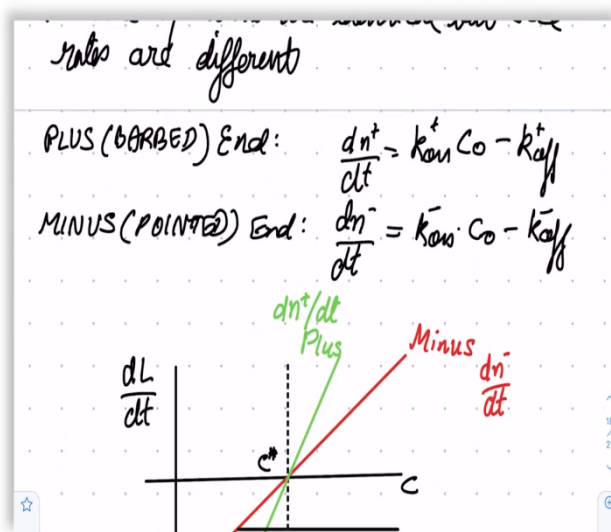 rates are different
PLUS (BARBED) End: dn⁺/dt = k⁺on C₀ - k⁺off
MINUS (POINTED) End: dn⁻/dt = k⁻on · C₀ - k⁻off
dn⁺/dt
Plus
Minus
dn⁻/dt
dL/dt
C*
C